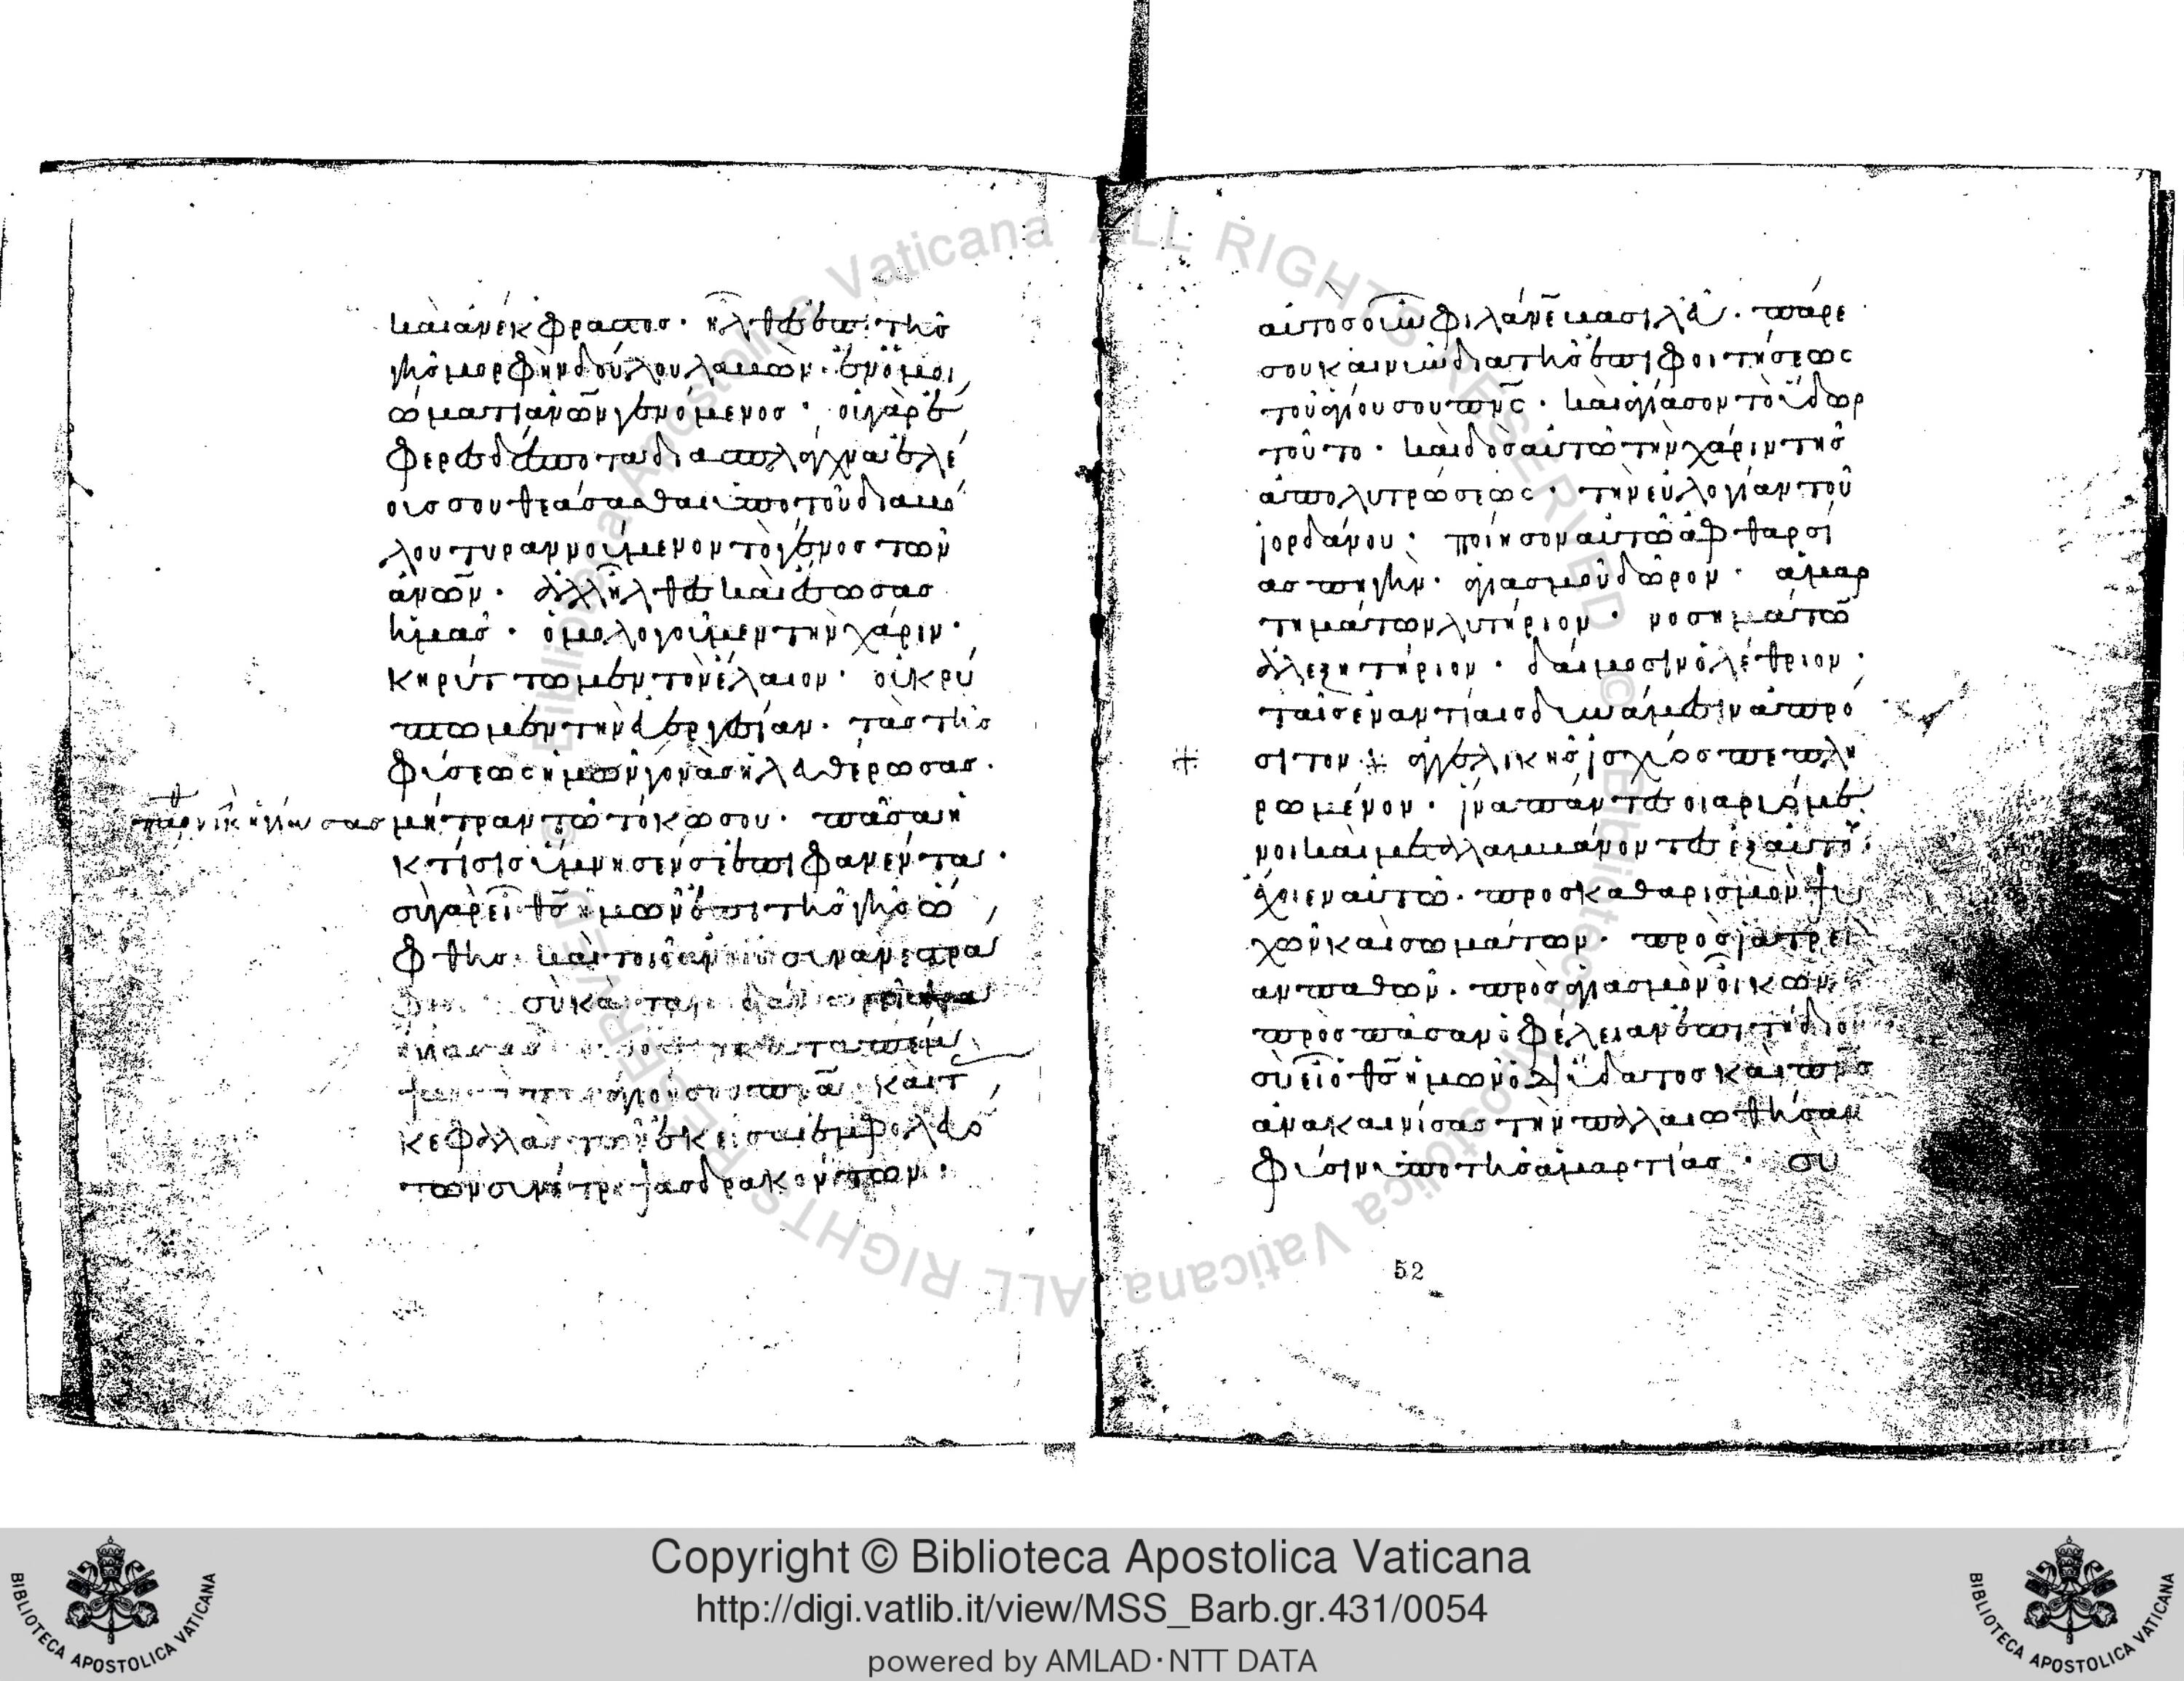 καὶ ἀνέκφραστος· ἦλθες ἐπὶ τῆς
γῆς μορφὴν δούλου λαβών· ἐν ὁμοι
ώματι ἀνῶν γενόμενος· οὐ γὰρ ἔ
φερες δέσποτα διὰ σπλάγχνα ἐλέ
ους σου θεάσασθαι ὑπὸ τοῦ διαβό
λου τυραννούμενον τὸ γένος τῶν
ἀνῶν· ἀλλ' ἦλθες καὶ ἔσωσας
ἡμᾶς· ὁμολογοῦμεν τὴν χάριν·
κηρύττωμεν τὸν ἔλαιον· οὐ κρύ
πτωμεν τὴν εὐεργεσίαν· τὰς τῆς
φύσεως ἡμῶν γονὰς ἠλευθέρωσας·
παρθενικὴν ἡγίασας μήτραν τῶ τόκω σου· πᾶσα ἡ
κτίσις ὕμνησέν σε ἐπιφανέντα·
σὺ γὰρ εἶ ὁ θς ἡμῶν ὁ ἐπὶ τῆς γῆς ὤ
φθης· καὶ τοῖς ἀνοις συνανεστρά
σὺ καὶ τὰ
τὸ πνα· καὶ τ
κεφαλὰς τῶν ἐκεῖσε ἐμφολευό
των συνέτριψας δρακόντων·
αὐτὸς οὖν φιλάνε βασιλεῦ· πάρε
σο καὶ νῦν διὰ τῆς ἐπιφοιτήσεως
τοῦ ἁγίου σου πνς· καὶ ἁγίασον τὸ ὕδωρ
τοῦτο· καὶ δὸς αὐτῶ τὴν χάριν τῆς
ἀπολυτρώσεως· τὴν εὐλογίαν τοῦ
ἰορδάνου· ποίησον αὐτῶ ἀφθαρσί
ας πηγὴν· ἁγιασμοῦ δῶρον· ἁμαρ
τημάτων λυτήριον· νοσημάτω
ἀλεξητήριον· δαίμοσιν ὀλέθριον·
ταῖς ἐναντίαις δυνάμεσιν ἀπρό
σιτον· ἀγγελικῆς ἰσχύος πεπλη
ρωμένον· ἵνα πάντες οἱ ἀρυόμε
νοι καὶ μεταλαμβάνοντες ἐξ αὐτοῦ
ἔχοιεν αὐτῶ· πρὸς καθαρισμὸν ψυ
χῶν καὶ σωμάτων· πρὸς ἰατρεί
αν παθῶν· πρὸς ἁγιασμὸν οἴκων·
πρὸς πᾶσαν ὀφέλειαν ἐπιτήδιον
σὺ εἶ ὁ θς ἡμῶν ὁ δι' ὕδατος καὶ πνς
ἀνακαινίσας τὴν παλαιωθῆσαν
φύσιν ὑπὸ τῆς ἁμαρτίας· σὺ
52
Copyright © Biblioteca Apostolica Vaticana
http://digi.vatlib.it/view/MSS_Barb.gr.431/0054
powered by AMLAD·NTT DATA
BIBLIOTECA APOSTOLICA VATICANA
BIBLIOTECA APOSTOLICA VATICANA